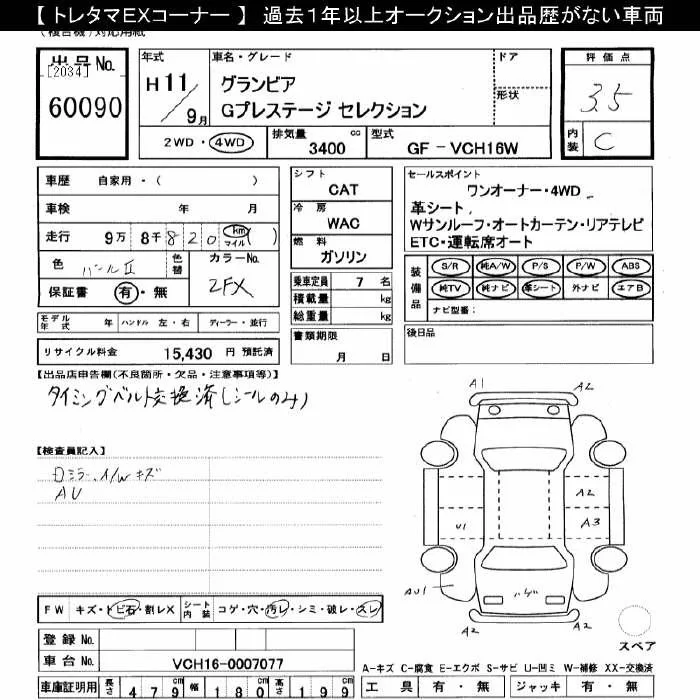 【 トレタマEXコーナー 】 過去1年以上オークション出品歴がない車両
(複合機)対応用紙
出品No.
[2034]
60090
年式
H 11 / 9月
車名・グレード
グランビア
Gプレステージ セレクション
ドア
形状
評価点
3.5
内装 C
2WD・4WD
排気量 3400 cc
型式 GF－VCH16W
車歴 自家用・( )
車検 年 月
走行 9万 8千 820 km マイル ( )
色 パールⅡ
色替
カラーNo. 2FX
保証書 有・無
モデル年式 年 ハンドル 左・右 ディーラー・並行
リサイクル料金 15,430 円 預託済
シフト
CAT
冷房
WAC
燃料
ガソリン
乗車定員 7 名
積載量 kg
総重量 kg
書類期限
月 日
セールスポイント
ワンオーナー・4WD
革シート
Wサンルーフ・オートカーテン・リアテレビ
ETC・運転席オート
装備品
S/R 純A/W P/S P/W ABS
純TV 純ナビ 革シート 外ナビ エアB
ナビ型番:
後日品
【出品店申告欄(不良箇所・欠品・注意事項等)】
タイミングベルト交換済(シールのみ)
【検査員記入】
Dミラー、A/Wキズ
AU
A1
A2
A2
U1
A3
AU1
ハゲ
A2
A2
スペア
FW キズ・トビ石・割レX
シート内装 コゲ・穴・汚レ・シミ・破レ・スレ
登録 No.
車台 No. VCH16-0007077
車庫証明用 長さ 479cm 幅 180cm 高さ 199cm
A-キズ C-腐食 E-エクボ S-サビ U-凹ミ W-補修 XX-交換済
工具 有・無 ジャッキ 有・無